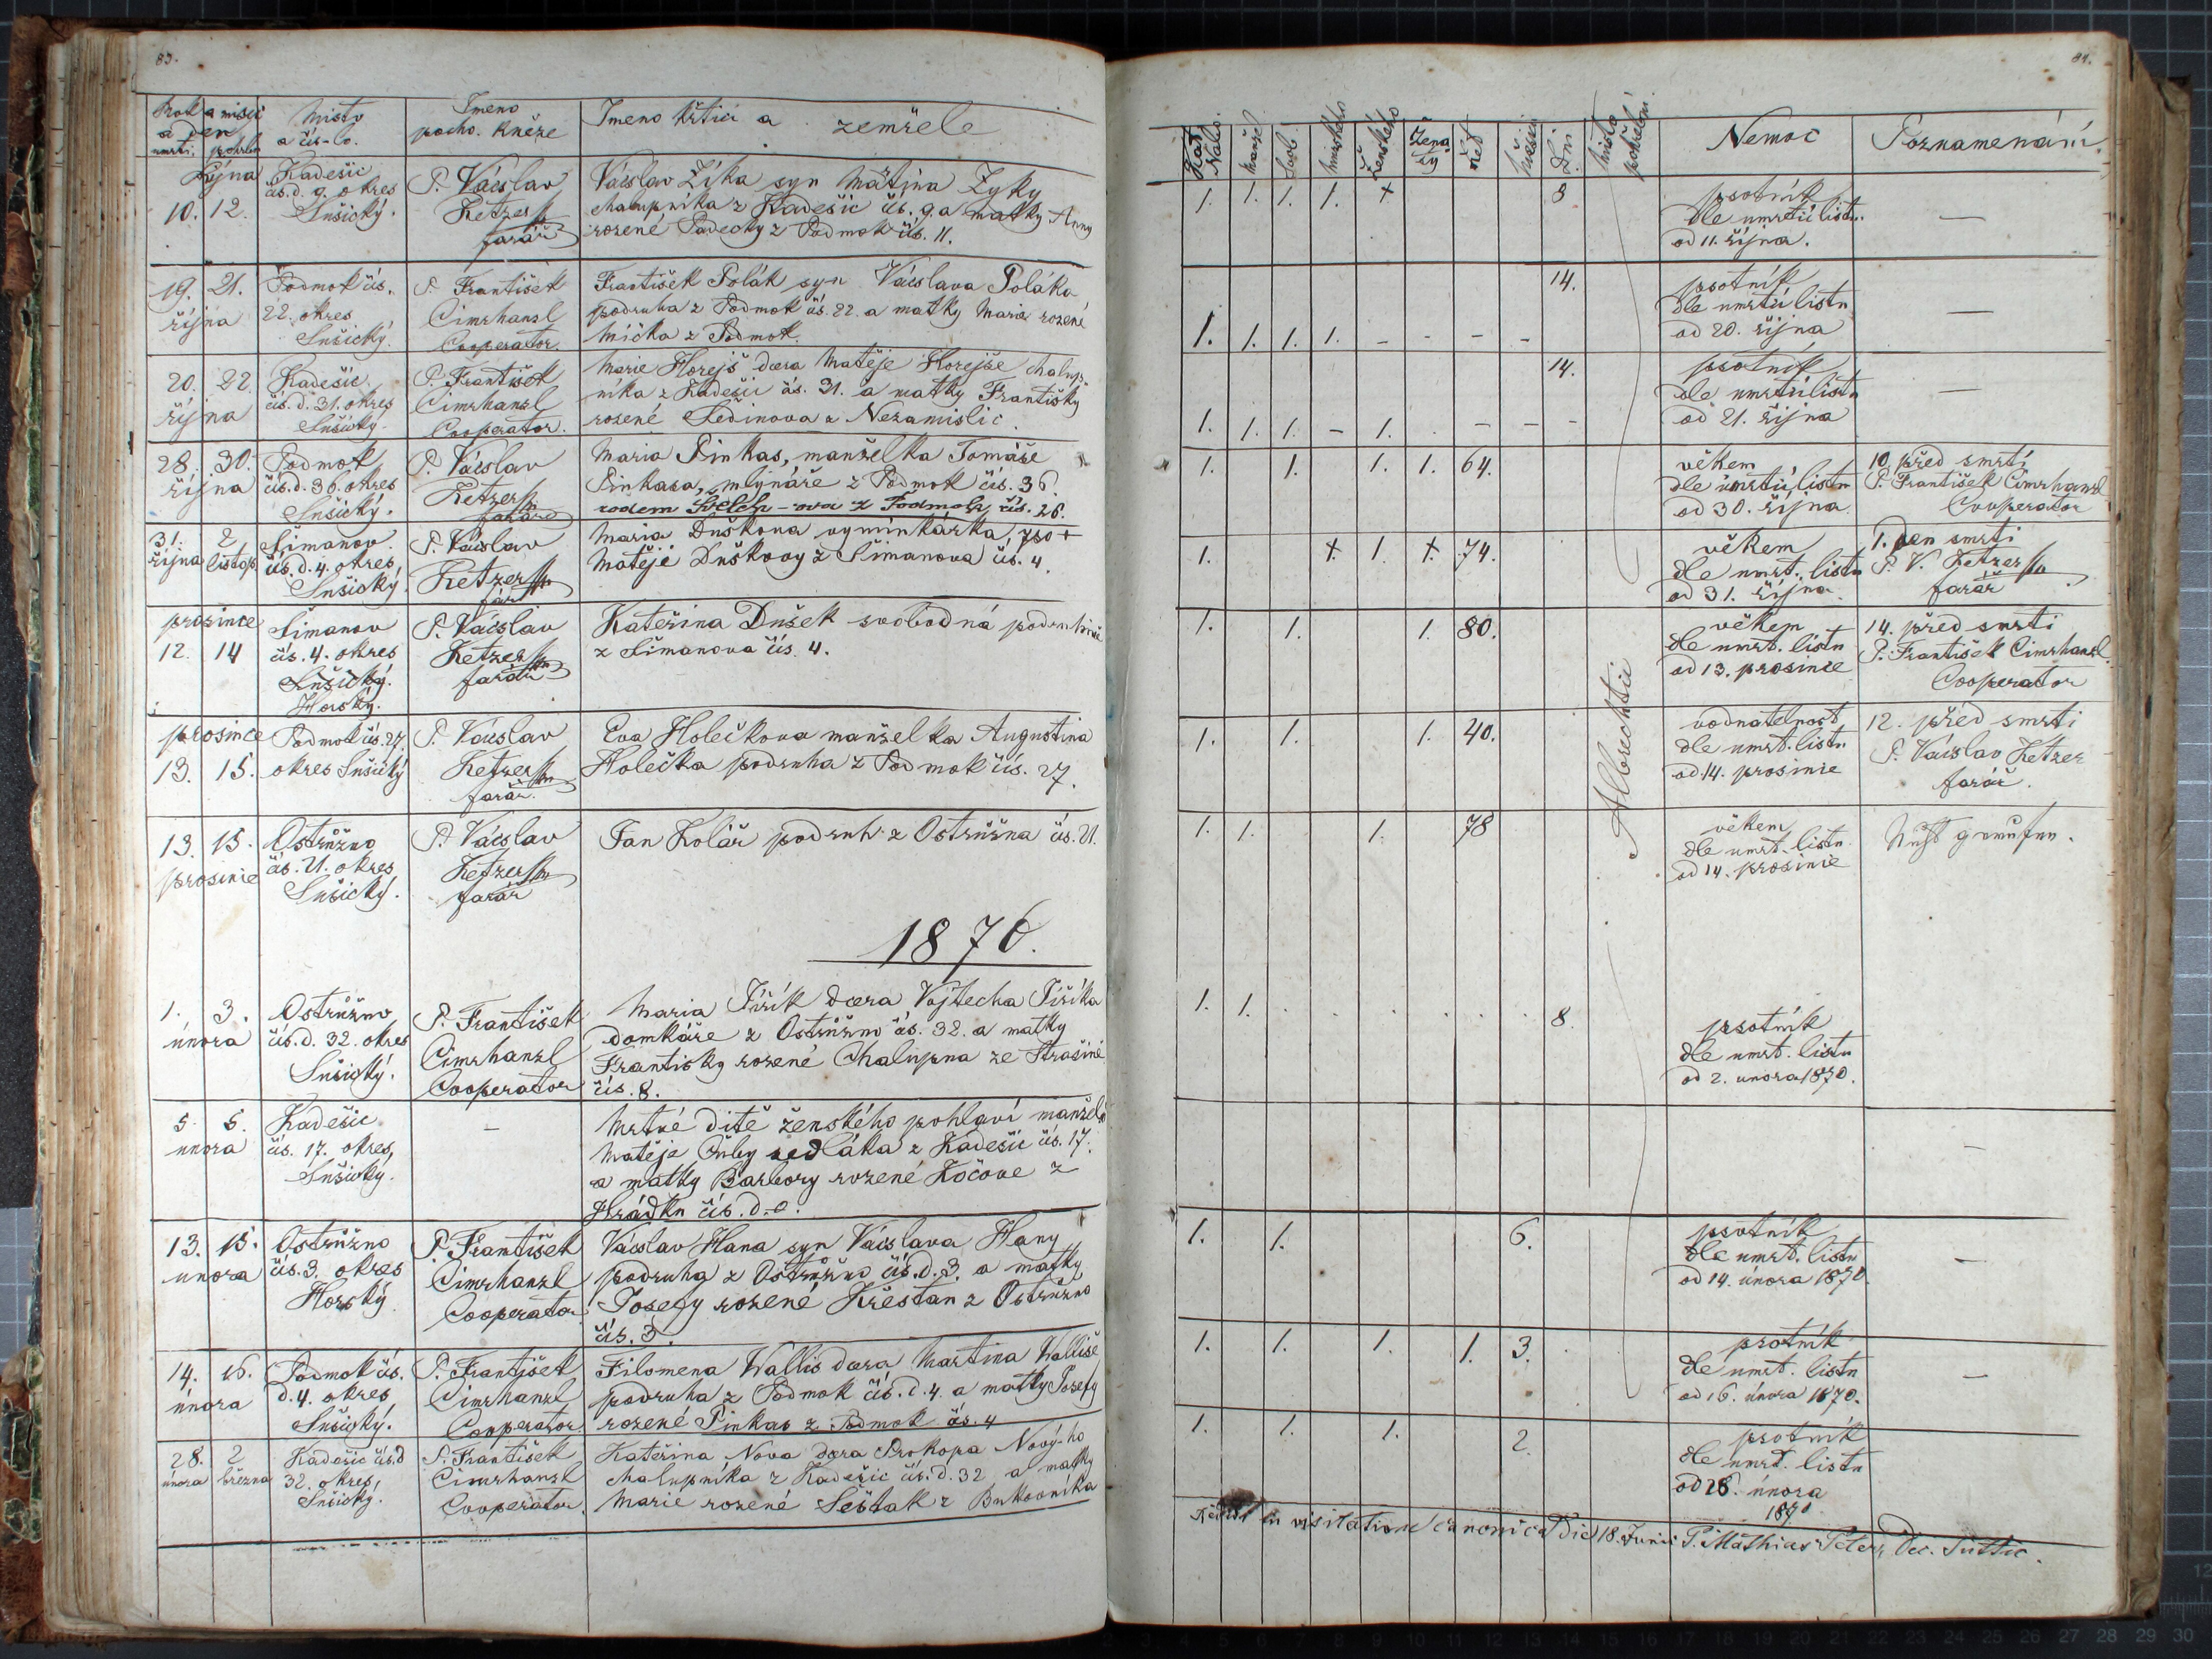 83.
Rok a misíc
a den
umrti. pohrbu
Místo
a čís-lo.
Imeno
pocho. kněze
Imeno křtici a zemřele
Října
10. 12.
Kadešic
čís. d. 9. okres
Sušický.
P. Václav
Ketzer
farář
Václav Žika syn Matina Zyky
chalupnika z Kadešic čís. 9. a matky Anny
rozené Padecky z Podmok čís. 11.
19. 21.
října
Podmok čís.
22. okres
Sušický.
P. František
Cimrhanzl
Cooperator.
František Polák syn Václava Poláka
podruha z Podmok čís. 22. a matky Marie rozené
Mička z Podmok.
20. 22.
října
Kadešic
čís. d. 31. okres
Sušický.
P. František
Cimrhanzl
Cooperator.
Marie Horejš dcera Matěje Horejše chalup-
nika z Kadešic čís. 31. a matky Františky
rozené Sedinova z Nezamislic.
28. 30.
října
Podmok
čís. d. 36. okres
Sušický.
P. Václav
Ketzer
farář
Maria Pinkas, manželka Tomáše
Pinkasa, mlynáře z Podmok čís. 36.
rodem -ova z Podmok, čís. 26.
31. 2
října listop.
Šimanov
čís. d. 4. okres,
Sušický.
P. Václav
Ketzer
far
Maria Duškova vyminkárka, po +
Matěje Duškovy z Šimanova čís. 4.
prosince
12. 14
Šimanov
čís. 4. okres
Sušický.
Horský.
P. Václav
Ketzer
farář
Kateřina Dušek svobodná podruhine
z Šimanova čís. 4.
prosince
13. 15.
Podmok čís. 27.
okres Sušický
P. Václav
Ketzer
farář.
Eva Holečkova manželka Augustina
Holečka podruha z Podmok čís. 27.
13. 15.
prosinie
Ostružno
čís. 21. okres
Sušický.
P. Václav
Ketzer
farář
Jan Kolář podruh z Ostružna čís. 21.
1870.
1. 3.
února
Ostružno
čís. d. 32. okres
Sušický.
P. František
Cimrhanzl
Cooperator
Maria Jiřík dcera Vojtecha Jiříka
domkáře z Ostružno čís. 32. a matky
Frantisky rozené Chalupna ze Strašine
čís. 8.
5. 5.
unora
Kadešic
čís. 17. okres,
Sušický.
–
Mrtvé ditě ženského pohlaví manželů
Matěje Ouby sedláka z Kadešic čís. 17.
a matky Barbory rozené Kočove z
Hrádku čís. d. o.
13. 15.
unora
Ostružno
čís. 3. okres
Horský.
P. František
Cimrhanzl
Cooperator
Václav Hana syn Václava Hany
podruha z Ostružno čís. d. 3. a matky
Josefy rozené Křestan z Ostružno
čís. 3.
14. 16.
února
Podmok čís.
d. 4. okres
Sušický.
P. František
Cimrhanzl
Cooperator.
Filomena Wallis dcera Martina Wallise
podruha z Podmok čís. d. 4. a matky Josefy
rozené Pinkas z Podmok čís. 4
28. 2
února března
Kadešic čís. d
32. okres,
Sušický.
P. František
Cimrhanzl
Cooperator.
Kateřina Nova dcera Prokopa Nový-ho
chalupnika z Kadešic čís. d. 32. a matky
Marie rozené Šeštak z Bukovnika
84.
Manžel
Mužského
Ženského
Žena
tý
Dni
Místo
pohřební
Nemoc
Poznamenání.
1. 1. 1. 1. + 8
psotník
dle umrtú listu.
od 11. října.
—
1. 1. 1. 1. – – – – 14.
psotník
dle umrtú listu
od 20. října
—
1. 1. 1. – 1. – – – 14.
psotník
dle umrtú listu
od 21. října
—
1. 1. 1. 1. 64.
věkem
dle úmrtú listu
od 30. října
10. před smrti
P. František Cimrhanzl
Cooperator
1. + 1. + 74.
věkem
dle umrt. listu
od 31. října.
1. den smrti
P. V. Ketzer
farář
1. 1. 1. 80.
věkem
dle umrt. listu
od 13. prosince
14. před smrti
P. František Cimrhanzl.
Cooperator
Albrechtic
1. 1. 1. 40.
vodnatelnost
dle umrt. listu
od 14. prosinie
12. před smrti
P. Václav Ketzer
farář.
1. 1. 1. 78
věkem
dle umrt. listu
od 14. prosinie
1. 1. 8.
psotník
dle umrt. listu
od 2. unora 1870.
—
1. 1. 6.
psotník
dle umrt. listu
od 14. února 1870.
—
1. 1. 1. 1. 3.
psotník
dle umrt. listu
od 16. února 1870.
—
1. 1. 1. 2.
psotník
dle umrt. listu
od 28. února
1870
in visitatione canonica Die 18. Junii P. Mathias Peter, Dec. Suttic.